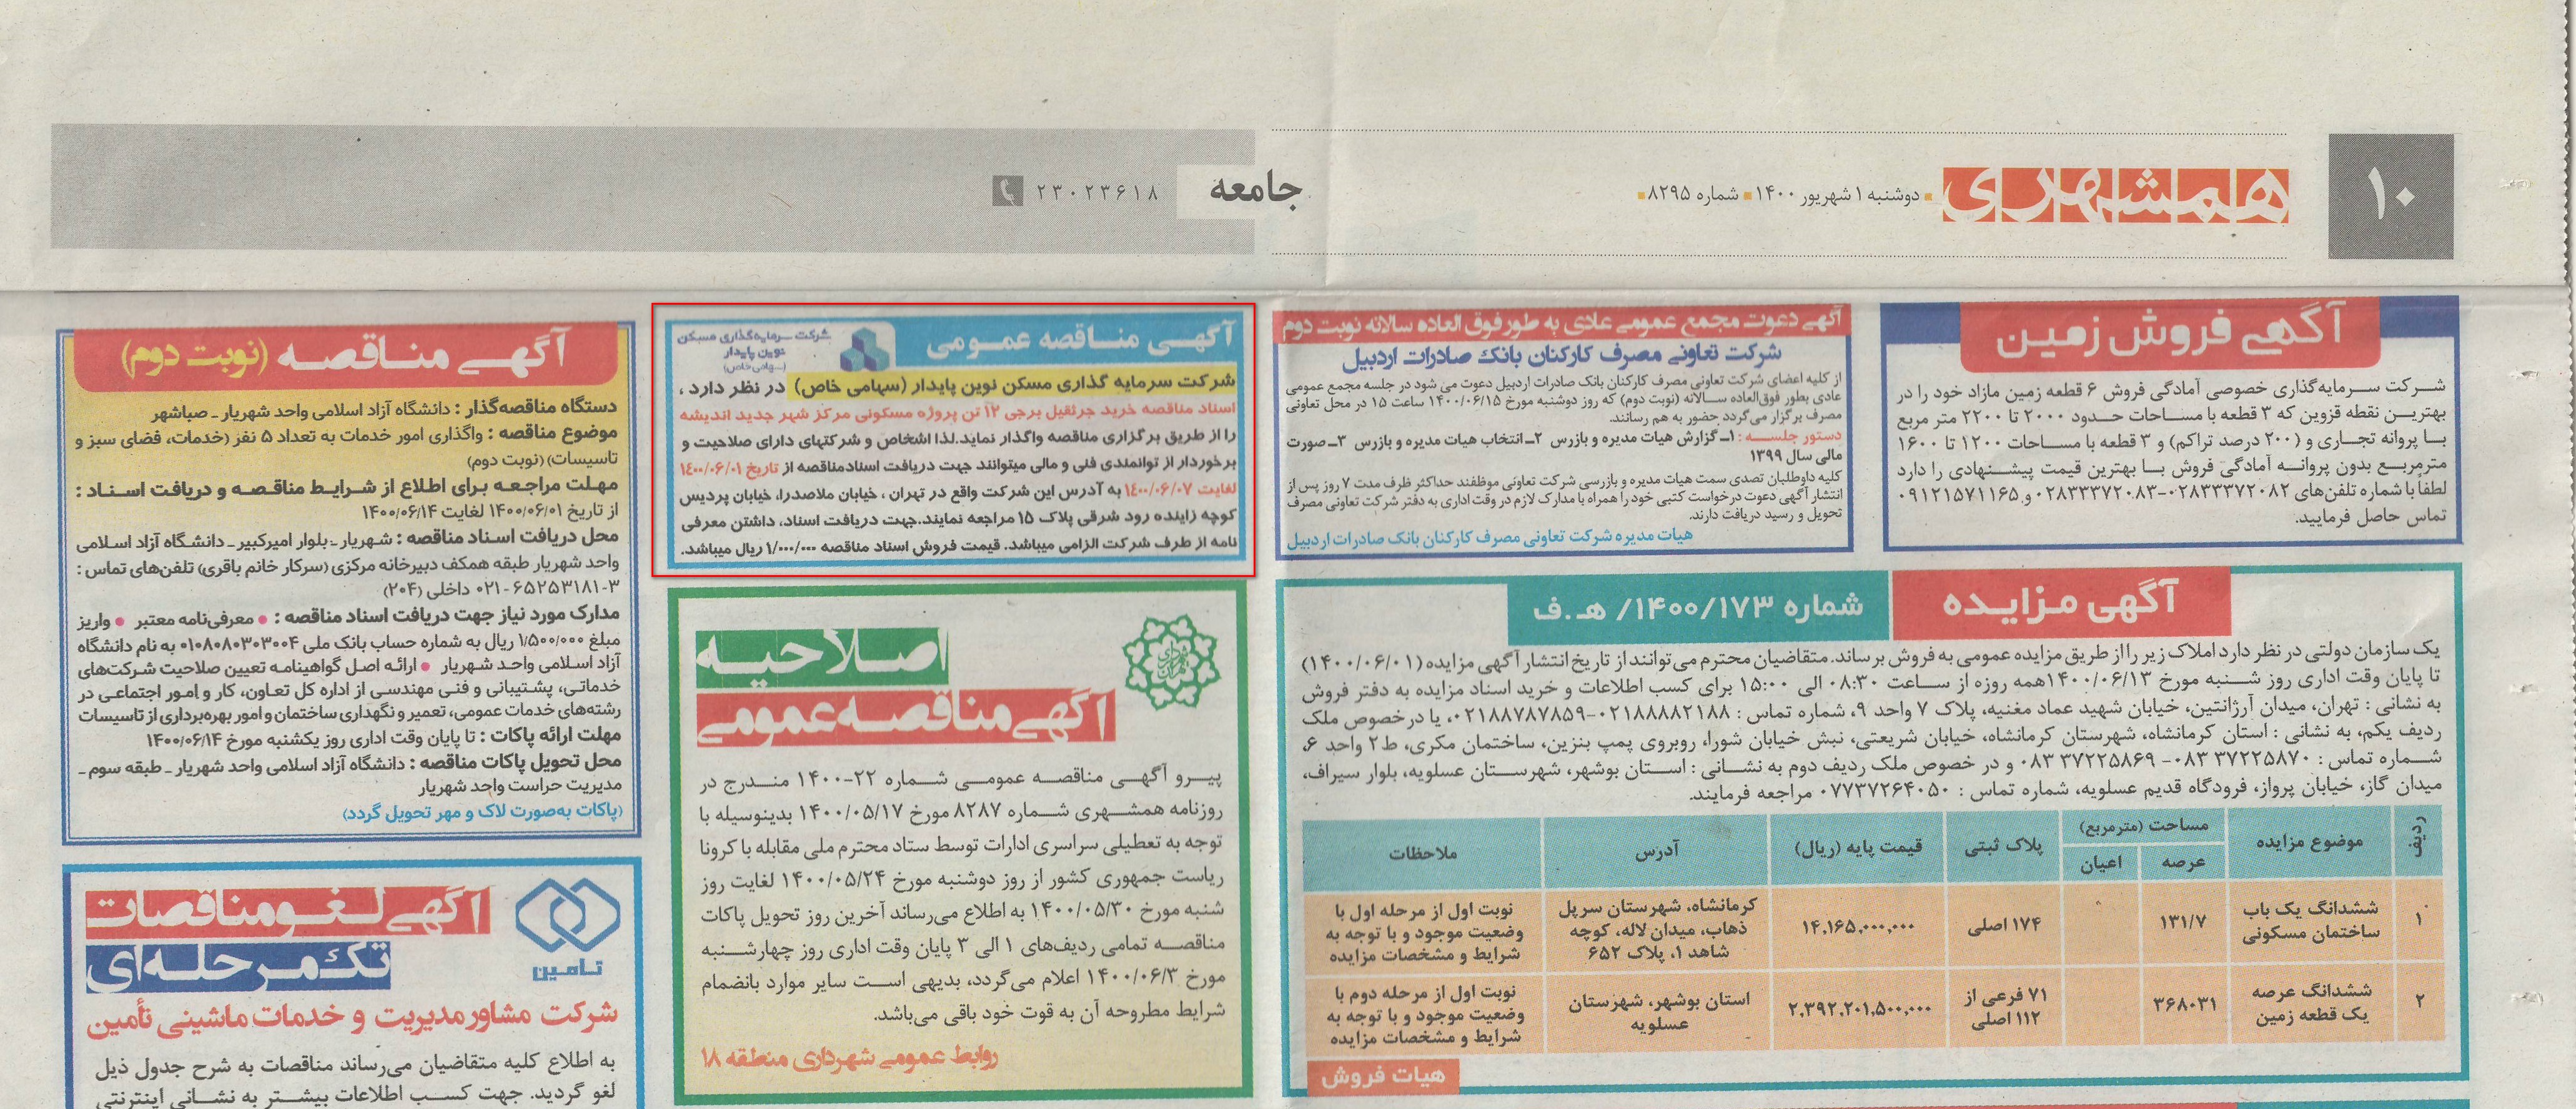 ۱۰
همشهری
دوشنبه ۱ شهریور ۱۴۰۰ شماره ۸۲۹۵
جامعه
۲۳۰۲۳۶۱۸
آگهی فروش زمین
شرکت سرمایه‌گذاری خصوصی آمادگی فروش ۶ قطعه زمین مازاد خود را در
بهترین نقطه قزوین که ۳ قطعه با مساحات حدود ۲۰۰۰ تا ۲۲۰۰ متر مربع
با پروانه تجاری و (۲۰۰ درصد تراکم) و ۳ قطعه با مساحات ۱۲۰۰ تا ۱۶۰۰
مترمربع بدون پروانه آمادگی فروش با بهترین قیمت پیشنهادی را دارد
لطفا با شماره تلفن‌های ۰۲۸۳۳۳۷۲۰۸۲-۰۲۸۳۳۳۷۲۰۸۳ و ۰۹۱۲۱۵۷۱۱۶۵
تماس حاصل فرمایید.
آگهی دعوت مجمع عمومی عادی به طور فوق العاده سالانه نوبت دوم
شرکت تعاونی مصرف کارکنان بانک صادرات اردبیل
از کلیه اعضای شرکت تعاونی مصرف کارکنان بانک صادرات اردبیل دعوت می شود در جلسه مجمع عمومی
عادی بطور فوق‌العاده سالانه (نوبت دوم) که روز دوشنبه مورخ ۱۴۰۰/۰۶/۱۵ ساعت ۱۵ در محل تعاونی
مصرف برگزار می‌گردد حضور به هم رسانند.
دستور جلسه : ۱ـ گزارش هیات مدیره و بازرس ۲ـ انتخاب هیات مدیره و بازرس ۳ـ صورت
مالی سال ۱۳۹۹
کلیه داوطلبان تصدی سمت هیات مدیره و بازرسی شرکت تعاونی موظفند حداکثر ظرف مدت ۷ روز پس از
انتشار آگهی دعوت درخواست کتبی خود را همراه با مدارک لازم در وقت اداری به دفتر شرکت تعاونی مصرف
تحویل و رسید دریافت دارند.
هیات مدیره شرکت تعاونی مصرف کارکنان بانک صادرات اردبیل
آگهی مناقصه عمومی
شرکت سرمایه‌گذاری مسکن
نوین پایدار
(سهامی خاص)
شرکت سرمایه گذاری مسکن نوین پایدار (سهامی خاص) در نظر دارد ،
اسناد مناقصه خرید جرثقیل برجی ۱۲ تن پروژه مسکونی مرکز شهر جدید اندیشه
را از طریق برگزاری مناقصه واگذار نماید.لذا اشخاص و شرکتهای دارای صلاحیت و
برخوردار از توانمندی فنی و مالی میتوانند جهت دریافت اسناد مناقصه از تاریخ ۱۴۰۰/۰۶/۰۱
لغایت ۱۴۰۰/۰۶/۰۷ به آدرس این شرکت واقع در تهران ، خیابان ملاصدرا، خیابان پردیس
کوچه زاینده رود شرقی پلاک ۱۵ مراجعه نمایند.جهت دریافت اسناد، داشتن معرفی
نامه از طرف شرکت الزامی میباشد. قیمت فروش اسناد مناقصه ۱/۰۰۰/۰۰۰ ریال میباشد.
آگهی مناقصه (نوبت دوم)
دستگاه مناقصه‌گذار : دانشگاه آزاد اسلامی واحد شهریار ـ صباشهر
موضوع مناقصه : واگذاری امور خدمات به تعداد ۵ نفر (خدمات، فضای سبز و
تاسیسات) (نوبت دوم)
مهلت مراجعه برای اطلاع از شرایط مناقصه و دریافت اسناد :
از تاریخ ۱۴۰۰/۰۶/۰۱ لغایت ۱۴۰۰/۰۶/۱۴
محل دریافت اسناد مناقصه : شهریار ـ بلوار امیرکبیر ـ دانشگاه آزاد اسلامی
واحد شهریار طبقه همکف دبیرخانه مرکزی (سرکار خانم باقری) تلفن‌های تماس :
۳-۶۵۲۵۳۱۸۱-۰۲۱ داخلی (۲۰۴)
مدارک مورد نیاز جهت دریافت اسناد مناقصه : ● معرفی‌نامه معتبر ● واریز
مبلغ ۱/۵۰۰/۰۰۰ ریال به شماره حساب بانک ملی ۰۱۰۸۰۸۰۳۰۳۰۰۴ به نام دانشگاه
آزاد اسلامی واحد شهریار ● ارائه اصل گواهینامه تعیین صلاحیت شرکت‌های
خدماتی، پشتیبانی و فنی مهندسی از اداره کل تعاون، کار و امور اجتماعی در
رشته‌های خدمات عمومی، تعمیر و نگهداری ساختمان و امور بهره‌برداری از تاسیسات
مهلت ارائه پاکات : تا پایان وقت اداری روز یکشنبه مورخ ۱۴۰۰/۰۶/۱۴
محل تحویل پاکات مناقصه : دانشگاه آزاد اسلامی واحد شهریار ـ طبقه سوم ـ
مدیریت حراست واحد شهریار
(پاکات به‌صورت لاک و مهر تحویل گردد)
آگهی مزایده
شماره ۱۴۰۰/۱۷۳/ هـ.ف
یک سازمان دولتی در نظر دارد املاک زیر را از طریق مزایده عمومی به فروش برساند. متقاضیان محترم می‌توانند از تاریخ انتشار آگهی مزایده (۱۴۰۰/۰۶/۰۱)
تا پایان وقت اداری روز شنبه مورخ ۱۴۰۰/۰۶/۱۳ همه روزه از ساعت ۰۸:۳۰ الی ۱۵:۰۰ برای کسب اطلاعات و خرید اسناد مزایده به دفتر فروش
به نشانی : تهران، میدان آرژانتین، خیابان شهید عماد مغنیه، پلاک ۷ واحد ۹، شماره تماس : ۰۲۱۸۸۸۸۲۱۸۸-۰۲۱۸۸۷۸۷۸۵۹، یا در خصوص ملک
ردیف یکم، به نشانی : استان کرمانشاه، شهرستان کرمانشاه، خیابان شریعتی، نبش خیابان شورا، روبروی پمپ بنزین، ساختمان مکری، ط۲ واحد ۶،
شماره تماس : ۳۷۲۲۵۸۷۰ ۰۸۳- ۳۷۲۲۵۸۶۹ ۰۸۳ و در خصوص ملک ردیف دوم به نشانی : استان بوشهر، شهرستان عسلویه، بلوار سیراف،
میدان گاز، خیابان پرواز، فرودگاه قدیم عسلویه، شماره تماس : ۰۷۷۳۷۲۶۴۰۵۰ مراجعه فرمایند.
ردیف موضوع مزایده مساحت (مترمربع) عرصه اعیان پلاک ثبتی قیمت پایه (ریال) آدرس ملاحظات
۱ ششدانگ یک باب ساختمان مسکونی ۱۳۱/۷ ۱۷۴ اصلی ۱۴،۱۶۵،۰۰۰،۰۰۰ کرمانشاه، شهرستان سرپل ذهاب، میدان لاله، کوچه شاهد ۱، پلاک ۶۵۲ نوبت اول از مرحله اول با وضعیت موجود و با توجه به شرایط و مشخصات مزایده
۲ ششدانگ عرصه یک قطعه زمین ۳۶۸۰۳۱ ۷۱ فرعی از ۱۱۲ اصلی ۲،۳۹۲،۲۰۱،۵۰۰،۰۰۰ استان بوشهر، شهرستان عسلویه نوبت اول از مرحله دوم با وضعیت موجود و با توجه به شرایط و مشخصات مزایده
هیات فروش
اصلاحیه
آگهی مناقصه عمومی
پیرو آگهی مناقصه عمومی شماره ۲۲-۱۴۰۰ مندرج در
روزنامه همشهری شماره ۸۲۸۷ مورخ ۱۴۰۰/۰۵/۱۷ بدینوسیله با
توجه به تعطیلی سراسری ادارات توسط ستاد محترم ملی مقابله با کرونا
ریاست جمهوری کشور از روز دوشنبه مورخ ۱۴۰۰/۰۵/۲۴ لغایت روز
شنبه مورخ ۱۴۰۰/۰۵/۳۰ به اطلاع می‌رساند آخرین روز تحویل پاکات
مناقصه تمامی ردیف‌های ۱ الی ۳ پایان وقت اداری روز چهارشنبه
مورخ ۱۴۰۰/۰۶/۳ اعلام می‌گردد، بدیهی است سایر موارد بانضمام
شرایط مطروحه آن به قوت خود باقی می‌باشد.
روابط عمومی شهرداری منطقه ۱۸
تامین
آگهی لغو مناقصات
تک مرحله‌ای
شرکت مشاور مدیریت و خدمات ماشینی تأمین
به اطلاع کلیه متقاضیان می‌رساند مناقصات به شرح جدول ذیل
لغو گردید. جهت کسب اطلاعات بیشتر به نشانی اینترنتی